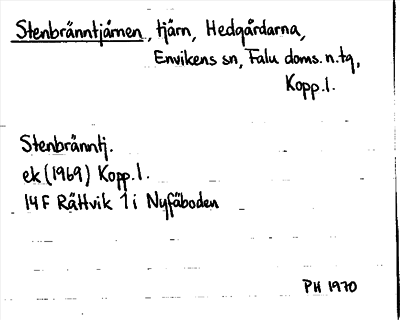 Stenbränntjärnen, tjärn, Hedgårdarna,
Envikens sn, Falu doms. n. tg,
Kopp. l.
Stenbränntj.
ek (1969) Kopp. l.
14 F Rättvik 1 i Nyfäboden
PH 1970